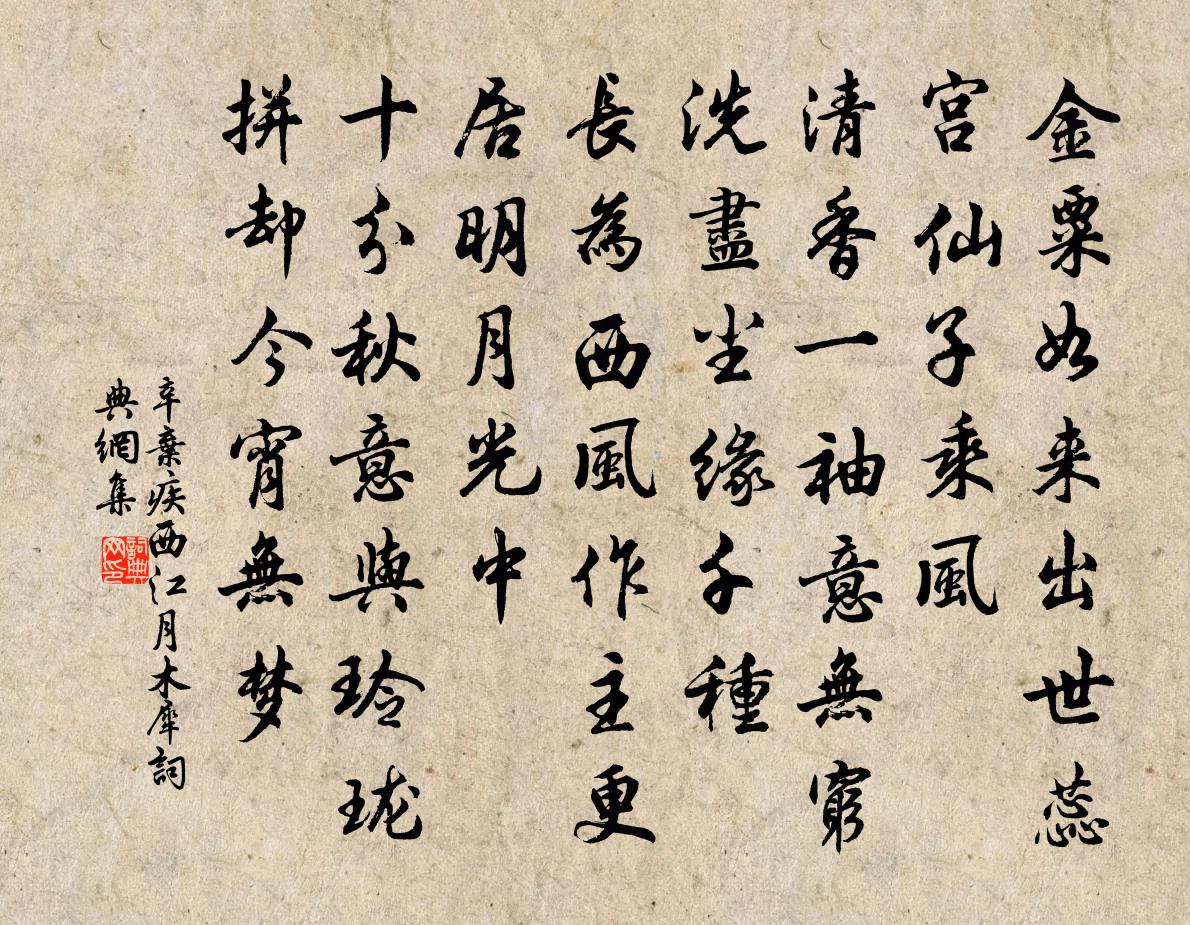 金粟如来出世蕊
宫仙子乘風
清香一袖意無窮
洗盡尘緣千種
長為西風作主更
居明月光中
十分秋意與玲珑
拼却今宵無梦
辛棄疾西江月木犀詞
典網集
詞典
网印